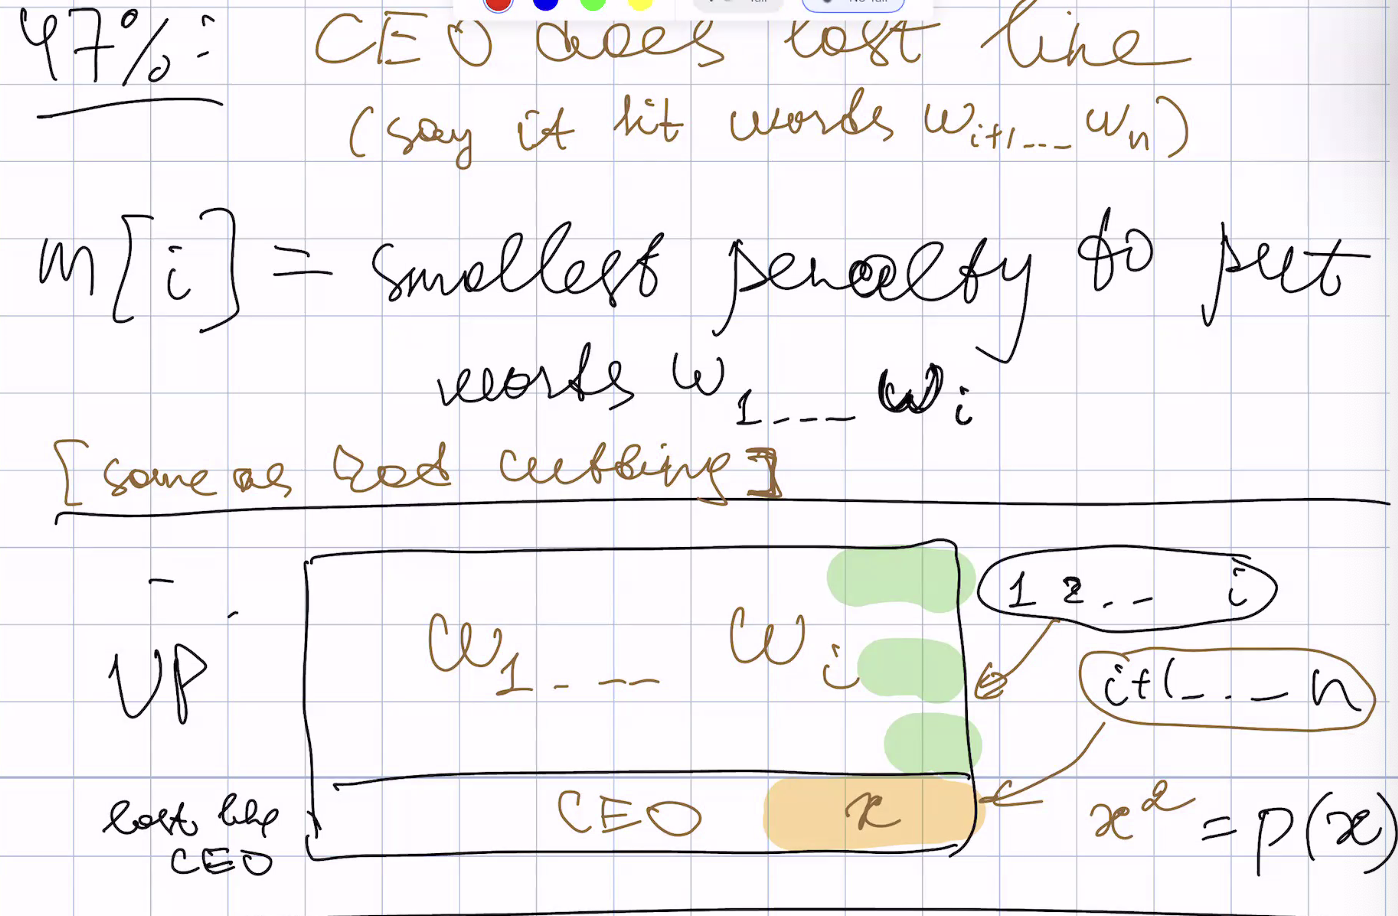 47%: CEO does last line
(say it hit words w_{i+1} --- w_n)
m[i] = smallest penalty to put
words w_1 --- w_i
[same as Rod cutting]
1 2 . . - i
w_1 - -- w_i
VP
i+1 - . - n
last line
CEO
CEO x
x^2 = P(x)